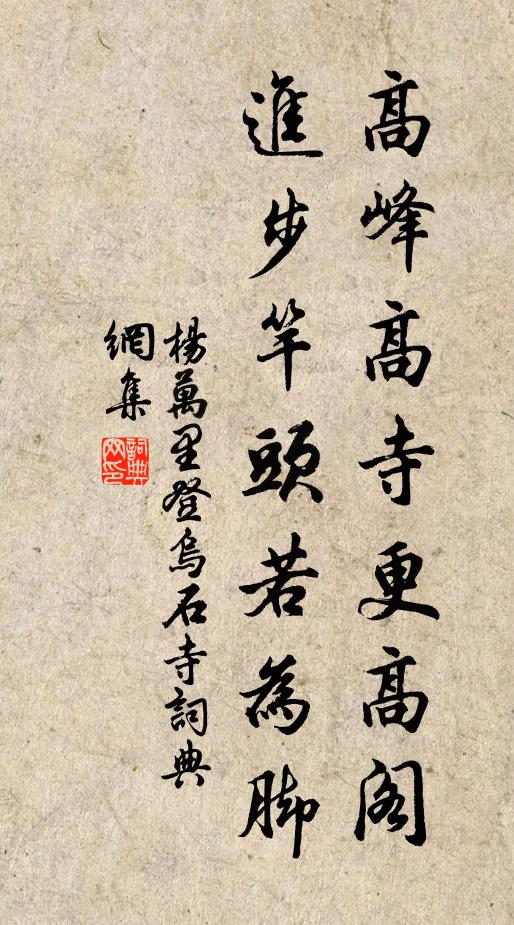 高峰高寺更高閣
進步竿頭若為脚
楊萬里登烏石寺詞典
網集
詞典網印